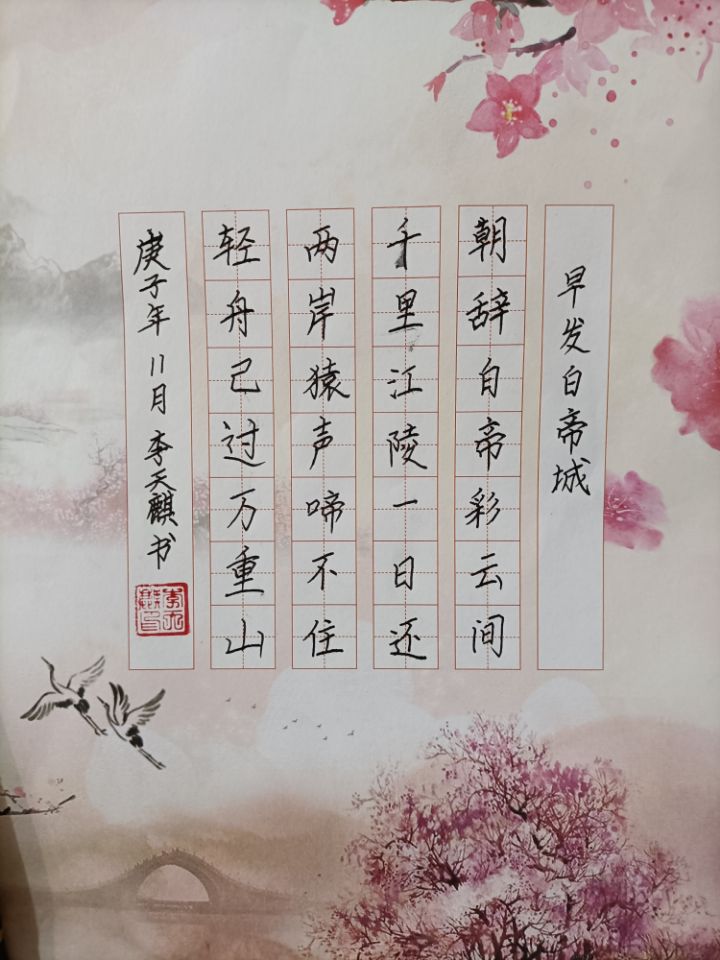 早发白帝城
朝辞白帝彩云间
千里江陵一日还
两岸猿声啼不住
轻舟已过万重山
庚子年 11月 李天麒书